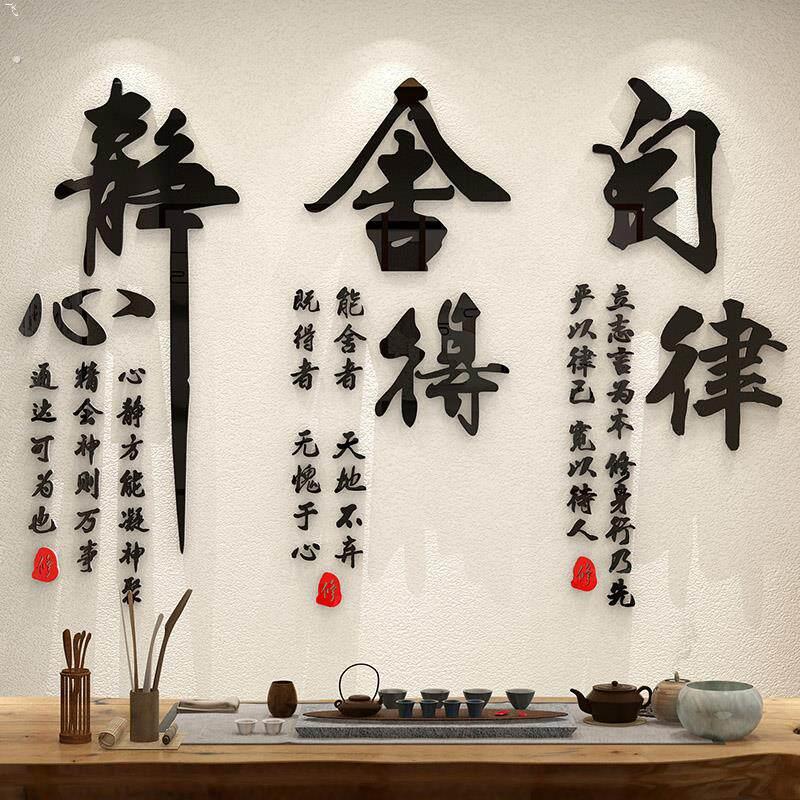 自律
立志言为本 修身行乃先
严以律己 宽以待人
修
舍得
能舍者 天地不弃
既得者 无愧于心
修
静心
心静方能凝神聚
精会神则万事
通达可为也
修